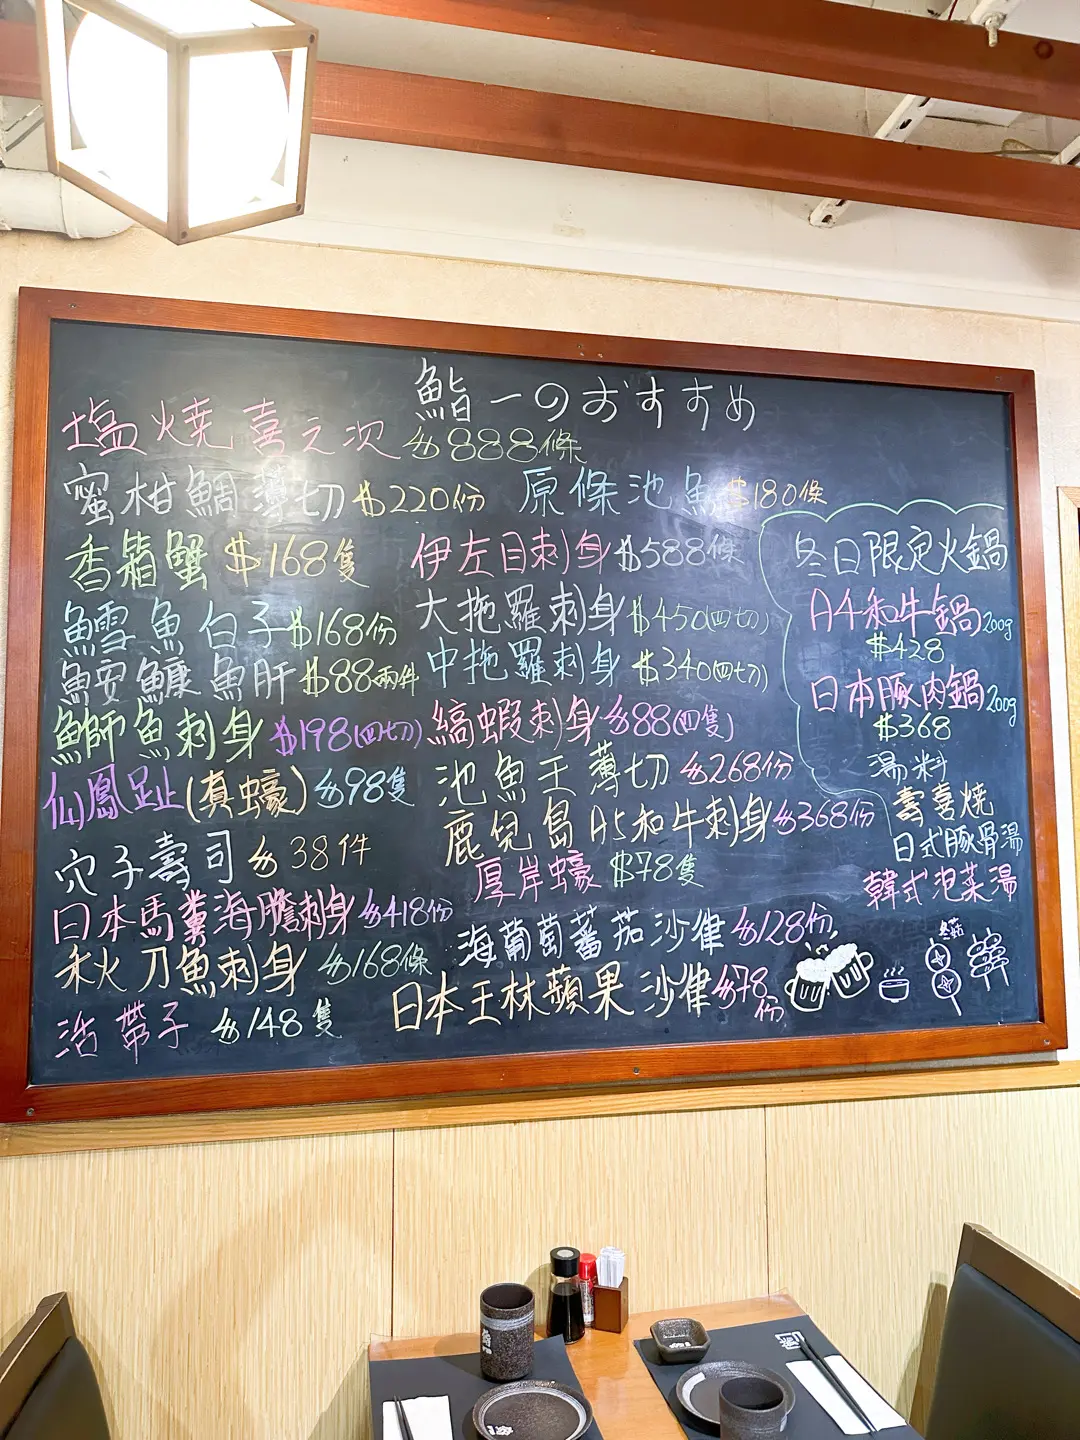 鮨一のおすすめ
塩燒喜之次 $888條
蜜柑鯛薄切 $220份
原條池魚 $180條
香箱蟹 $168隻
伊左目刺身 $588條
鱈魚白子 $168份
大拖羅刺身 $450(四切)
鮟鱇魚肝 $88兩件
中拖羅刺身 $340(四切)
鰤魚刺身 $198(四切)
縞蝦刺身 $88(四隻)
仙鳳趾(真蠔) $98隻
池魚王薄切 $268份
穴子壽司 $38件
鹿兒島A5和牛刺身 $368份
厚岸蠔 $78隻
日本馬糞海膽刺身 $418份
海葡萄蕃茄沙律 $128份
秋刀魚刺身 $168條
日本王林蘋果沙律 $78份
活帶子 $148隻
冬日限定火鍋
A4和牛鍋200g
$428
日本豚肉鍋200g
$368
湯料
壽喜燒
日式豚骨湯
韓式泡菜湯